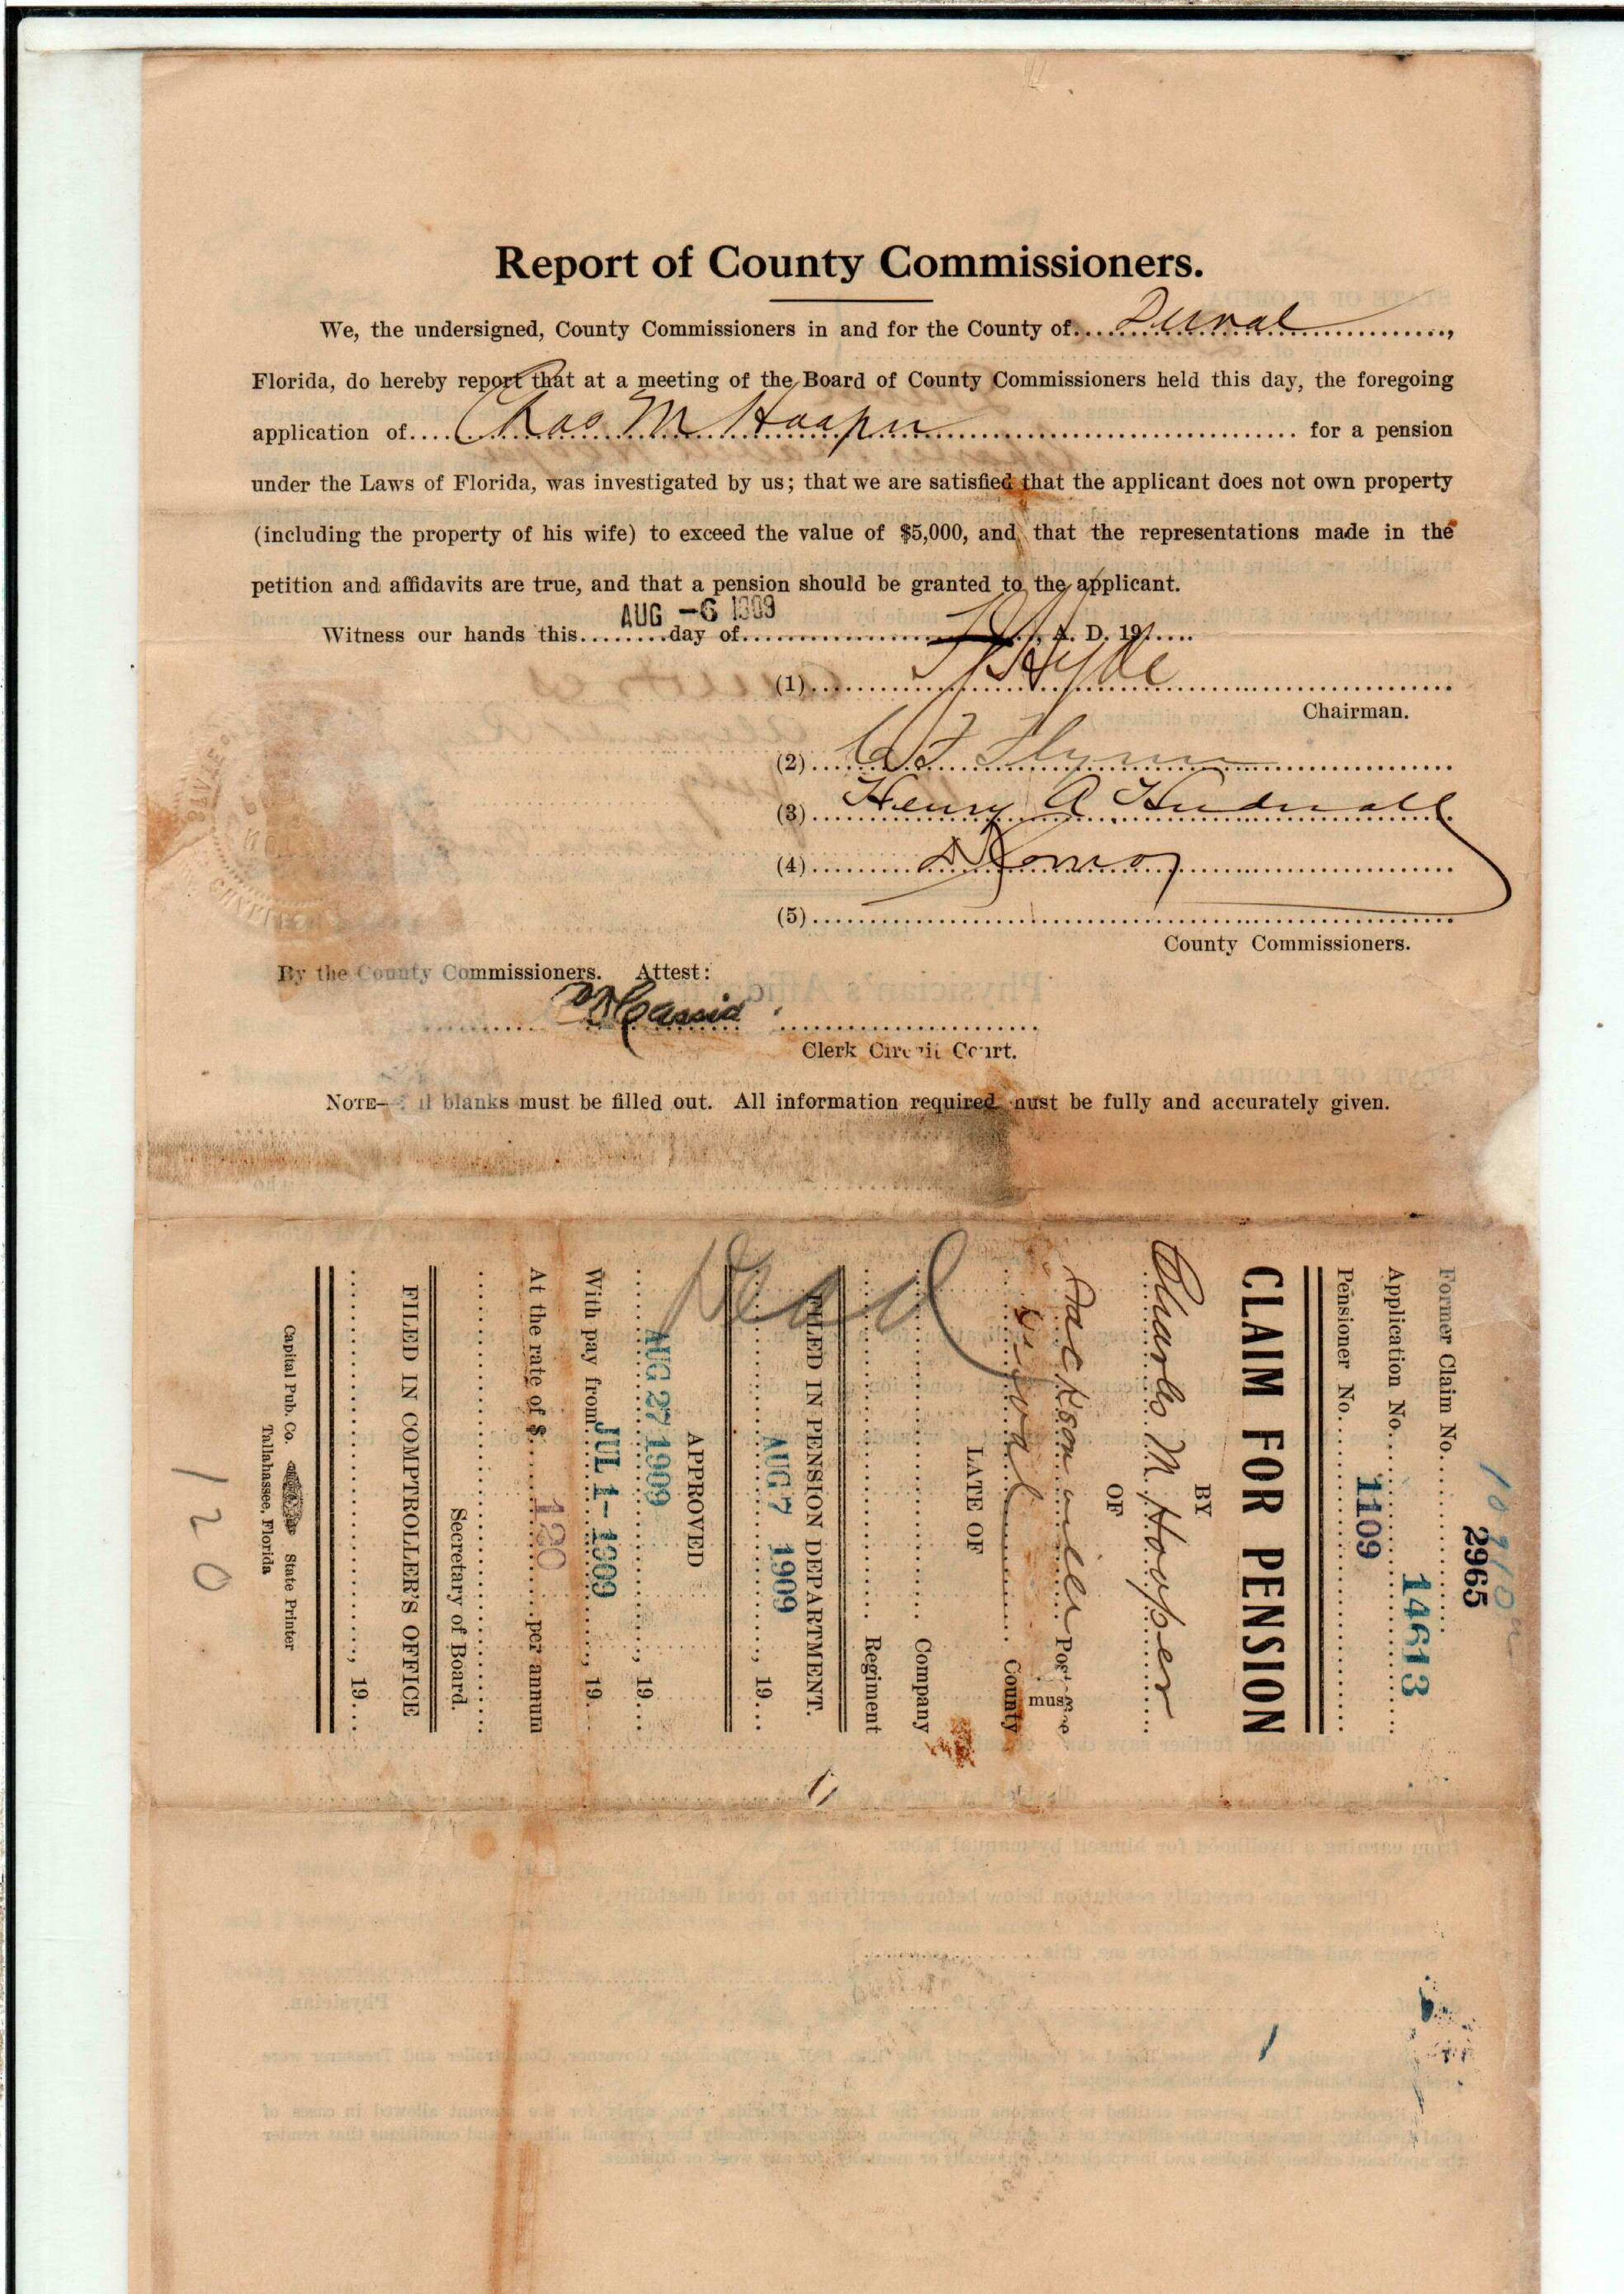 Report of County Commissioners.
We, the undersigned, County Commissioners in and for the County of....Duval..........,
Florida, do hereby report that at a meeting of the Board of County Commissioners held this day, the foregoing
application of....Chas M Hooper.......... for a pension
under the Laws of Florida, was investigated by us; that we are satisfied that the applicant does not own property
(including the property of his wife) to exceed the value of $5,000, and that the representations made in the
petition and affidavits are true, and that a pension should be granted to the applicant.
AUG -6 1909
Witness our hands this........day of.........., A. D. 19.....
(1).......... Hyde ..........
Chairman.
(2)..........
(3).... Henry A Hudnall
(4)..........
(5)..........
County Commissioners.
By the County Commissioners. Attest:
..........
Clerk Circuit Court.
NOTE— blanks must be filled out. All information required must be fully and accurately given.
2965
Former Claim No..........
14613
Application No..........
1109
Pensioner No..........
CLAIM FOR PENSION
BY
Charles M Hooper
OF
Jacksonville
Duval .......... County
LATE OF
.......... Company
.......... Regiment
FILED IN PENSION DEPARTMENT.
AUG 7 1909
.........., 19....
Dead
APPROVED
AUG 27 1909
.........., 19....
With pay from JUL 1- 1909 .........., 19....
At the rate of $.... 120 ....per annum
..........
Secretary of Board.
FILED IN COMPTROLLER'S OFFICE
.........., 19....
Capital Pub. Co. State Printer
Tallahassee, Florida
120